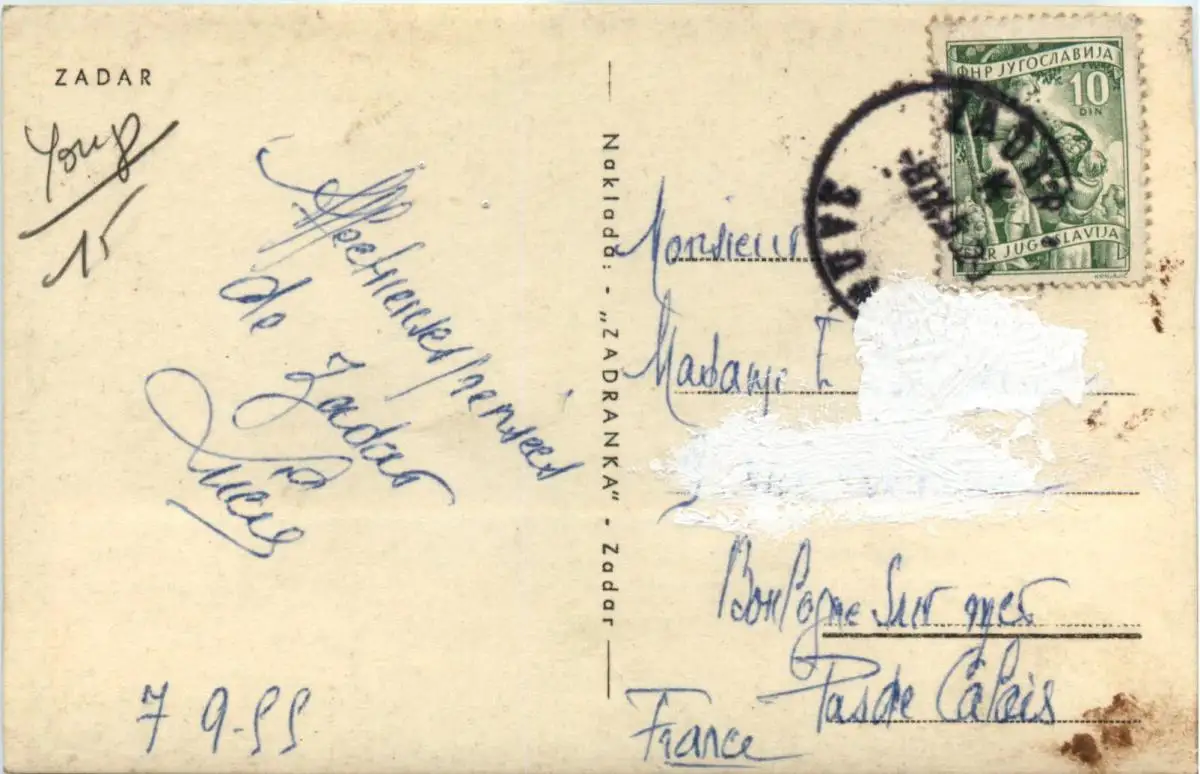 ZADAR
Youg
15
Affectueuses pensées
de Zadar
7 9-55
Naklada: - „ZADRANKA“ - Zadar
ФНР ЈУГОСЛАВИЈА
10
DIN
FNR JUGOSLAVIJA
ZADAR
ЗАДАР
Monsieur
Madame
Boulogne sur mer
Pas de Calais
France